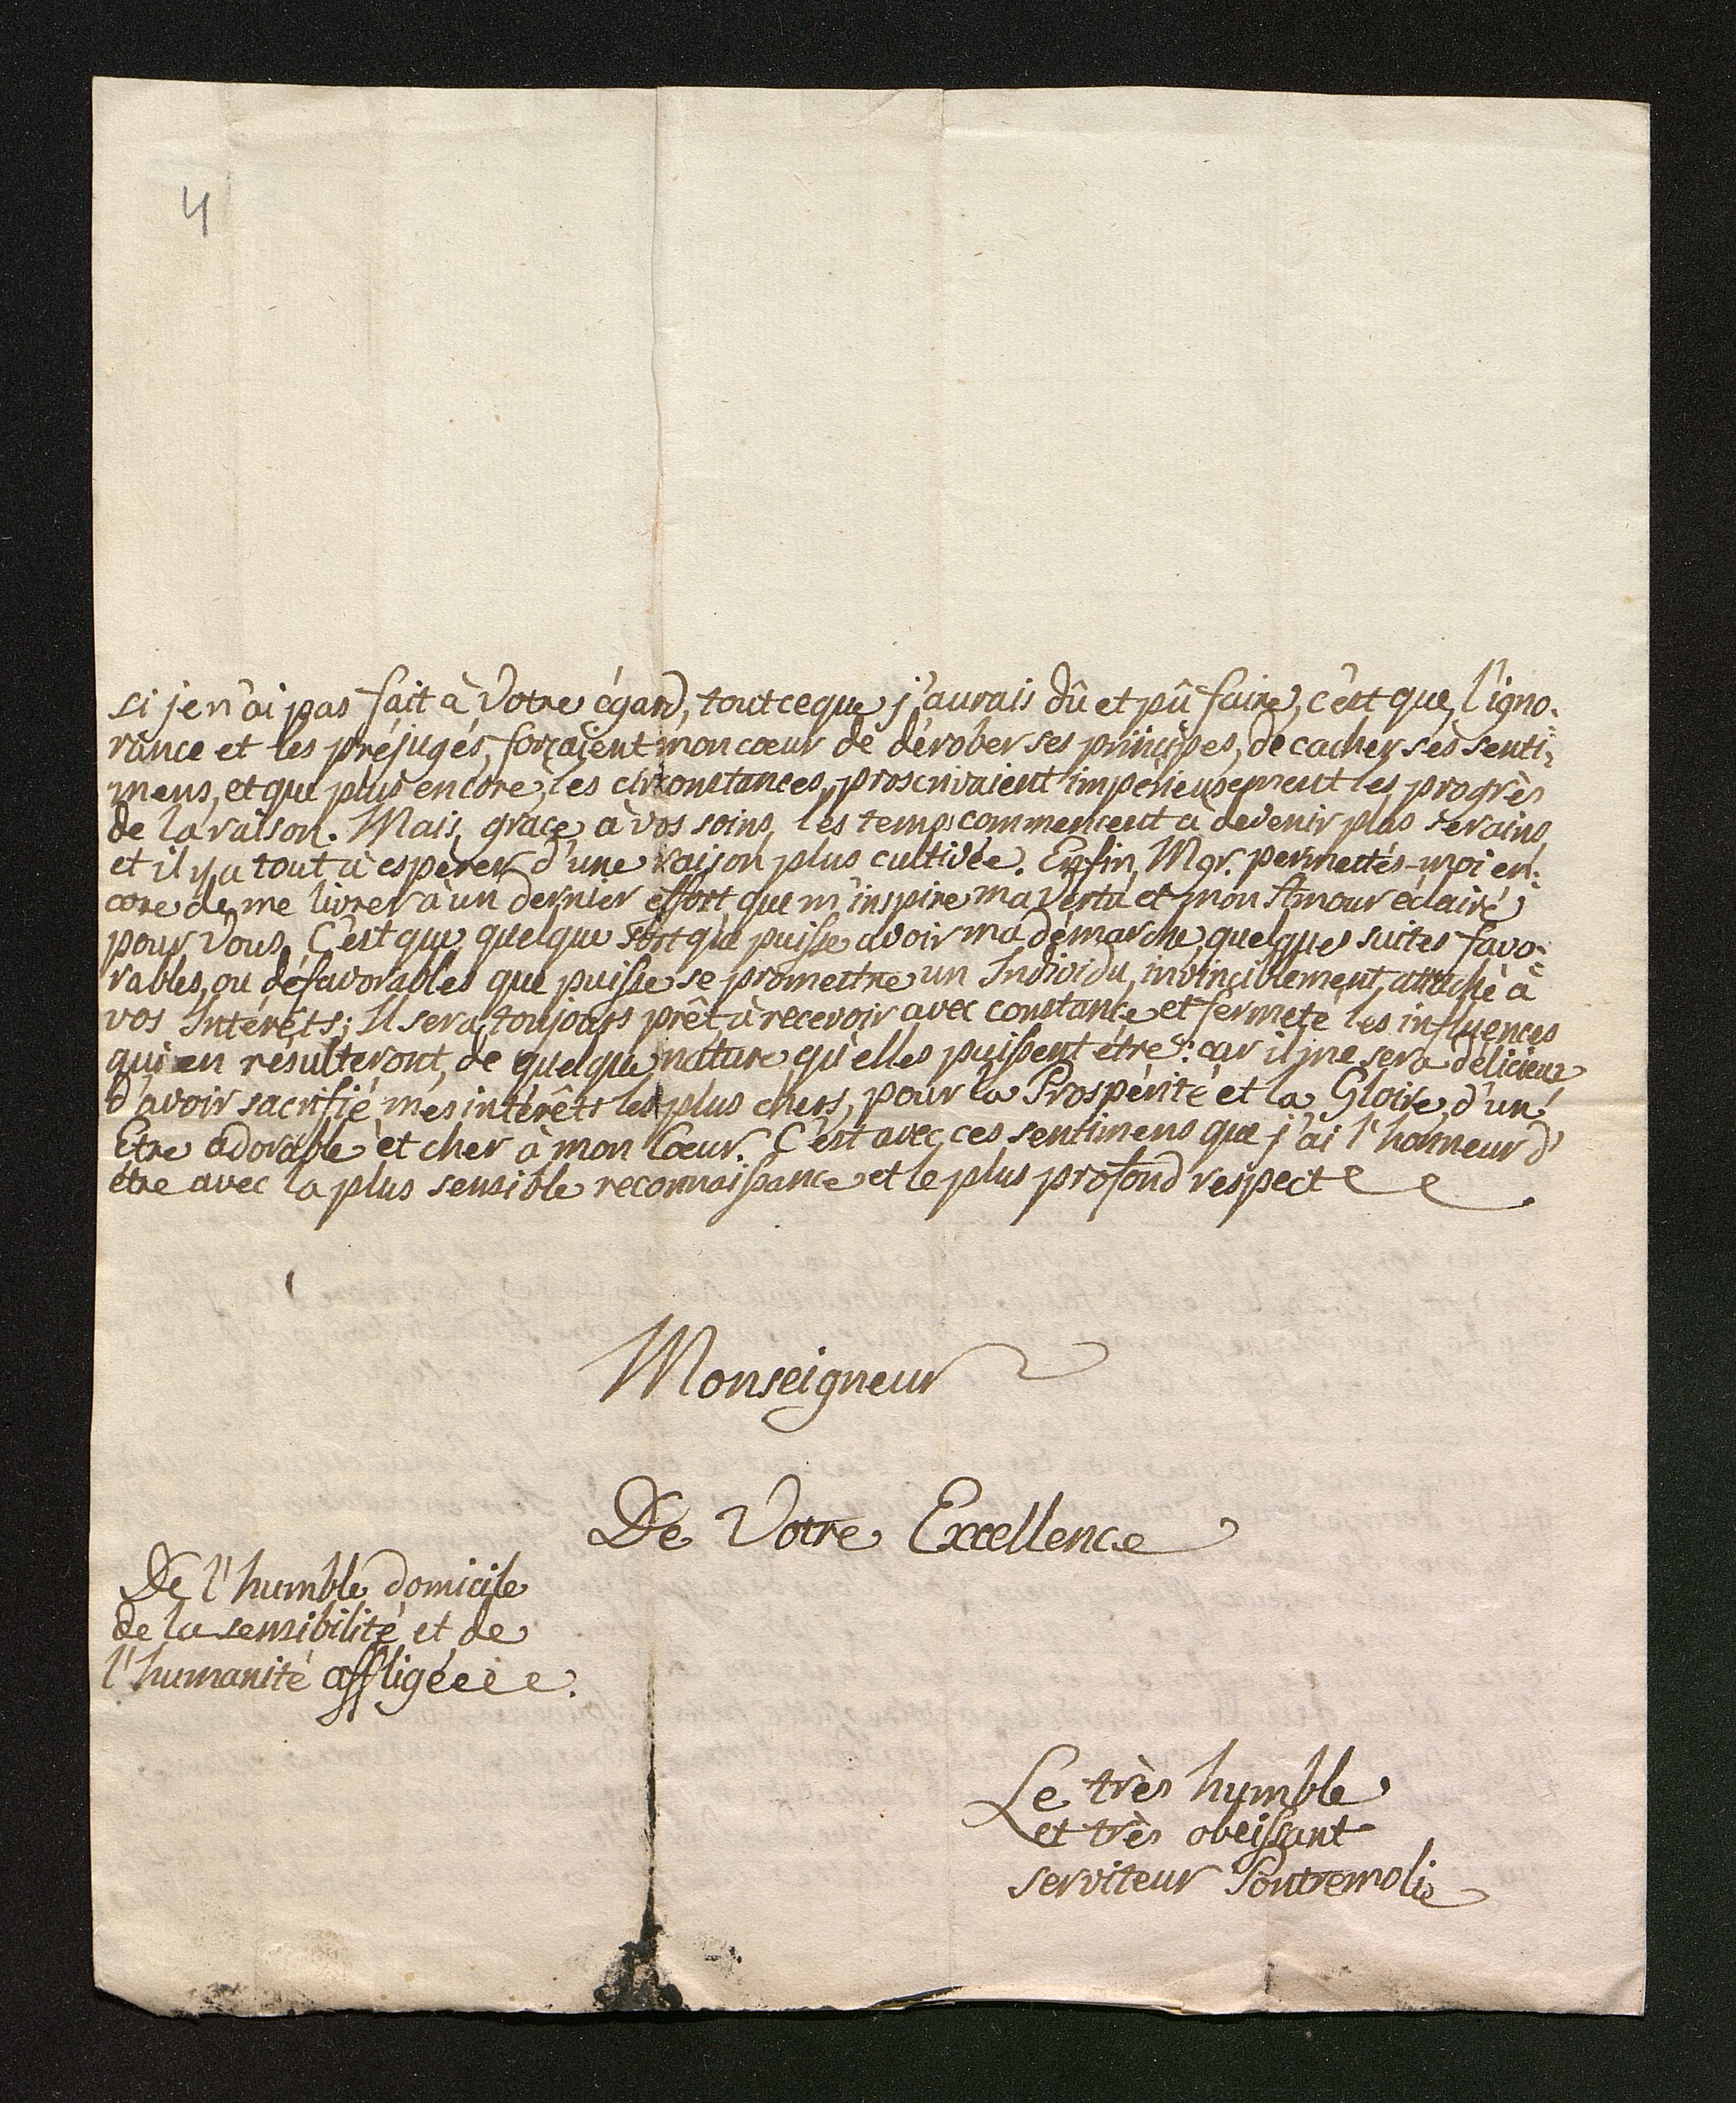 4
si je n'ai pas fait à Votre égard, tout ce que j'aurais dû et pû faire, c'est que l'igno-
rance et les préjugés, forçaient mon cœur de dérober ses principes, de cacher ses senti-
mens, et que plus encore, les circonstances, proscrivaient impérieusement les progrès
de la raison. Mais, grace à vos soins, les temps commencent a devenir plus serains,
et il y a tout à espérer d'une raison plus cultivée. Enfin, Mgr. permettés-moi en-
core de me livrer à un dernier effort que m'inspire ma vertu et mon Amour éclairé
pour Vous, C'est que quelque sort que puisse avoir ma démarche, quelques suites favo-
rables, ou défavorables que puisse se promettre un Individu, invinciblement, attaché à
vos Intérêts; Il sera toujours prêt à recevoir avec constance et fermeté les influences
qui en résulteront, de quelque nature qu'elles puissent être: car il me sera délicieux
d'avoir sacrifié mes intérêts les plus chers, pour la Prospérité et la Gloire, d'un
Etre adorable et cher à mon Cœur. C'est avec ces sentimens que j'ai l'honneur d'
être avec la plus sensible reconnaissance et le plus profond respect
Monseigneur
De Votre Excellence
De l'humble domicile
de la sensibilité et de
l'humanité affligée.
Le très humble
et très obeissant
serviteur Pontremoli